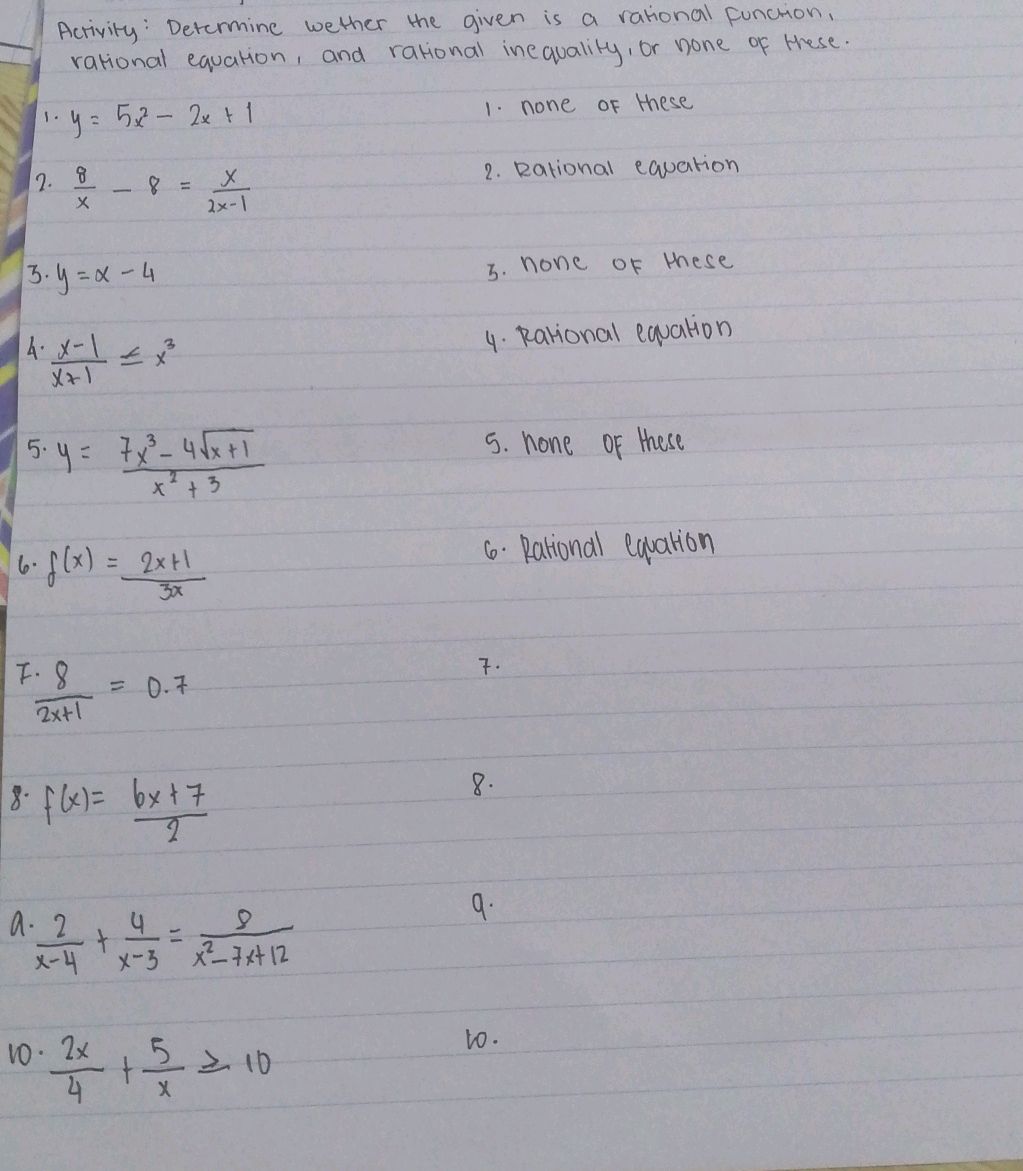 Activity: Determine wether the given is a rational function,
rational equation, and rational inequality, or none of these.
1. y = 5x² - 2x + 1 1. none of these
2. 8/x - 8 = x/(2x-1) 2. Rational equation
3. y = x - 4 3. none of these
4. (x-1)/(x+1) ≤ x³ 4. Rational equation
5. y = (7x³ - 4√(x+1))/(x² + 3) 5. none of these
6. f(x) = (2x+1)/(3x) 6. Rational equation
7. 8/(2x+1) = 0.7 7.
8. f(x) = (6x+7)/2 8.
9. 2/(x-4) + 4/(x-3) = 8/(x²-7x+12) 9.
10. 2x/4 + 5/x ≥ 10 10.